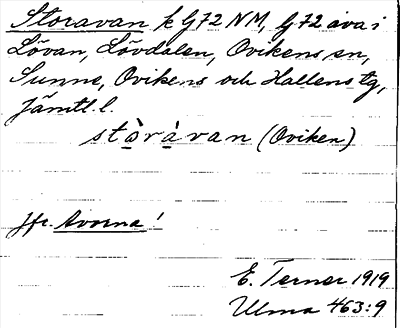 Storavan k G72 NM, G72 ava i
Lövan, Lövdalen, Ovikens sn,
Sunne, Ovikens och Hallens tg,
Jämtl. l.
stò̱rá̱van (Oviken)
Jfr. Avorna!
E. Terner 1919
Ulma 463:9